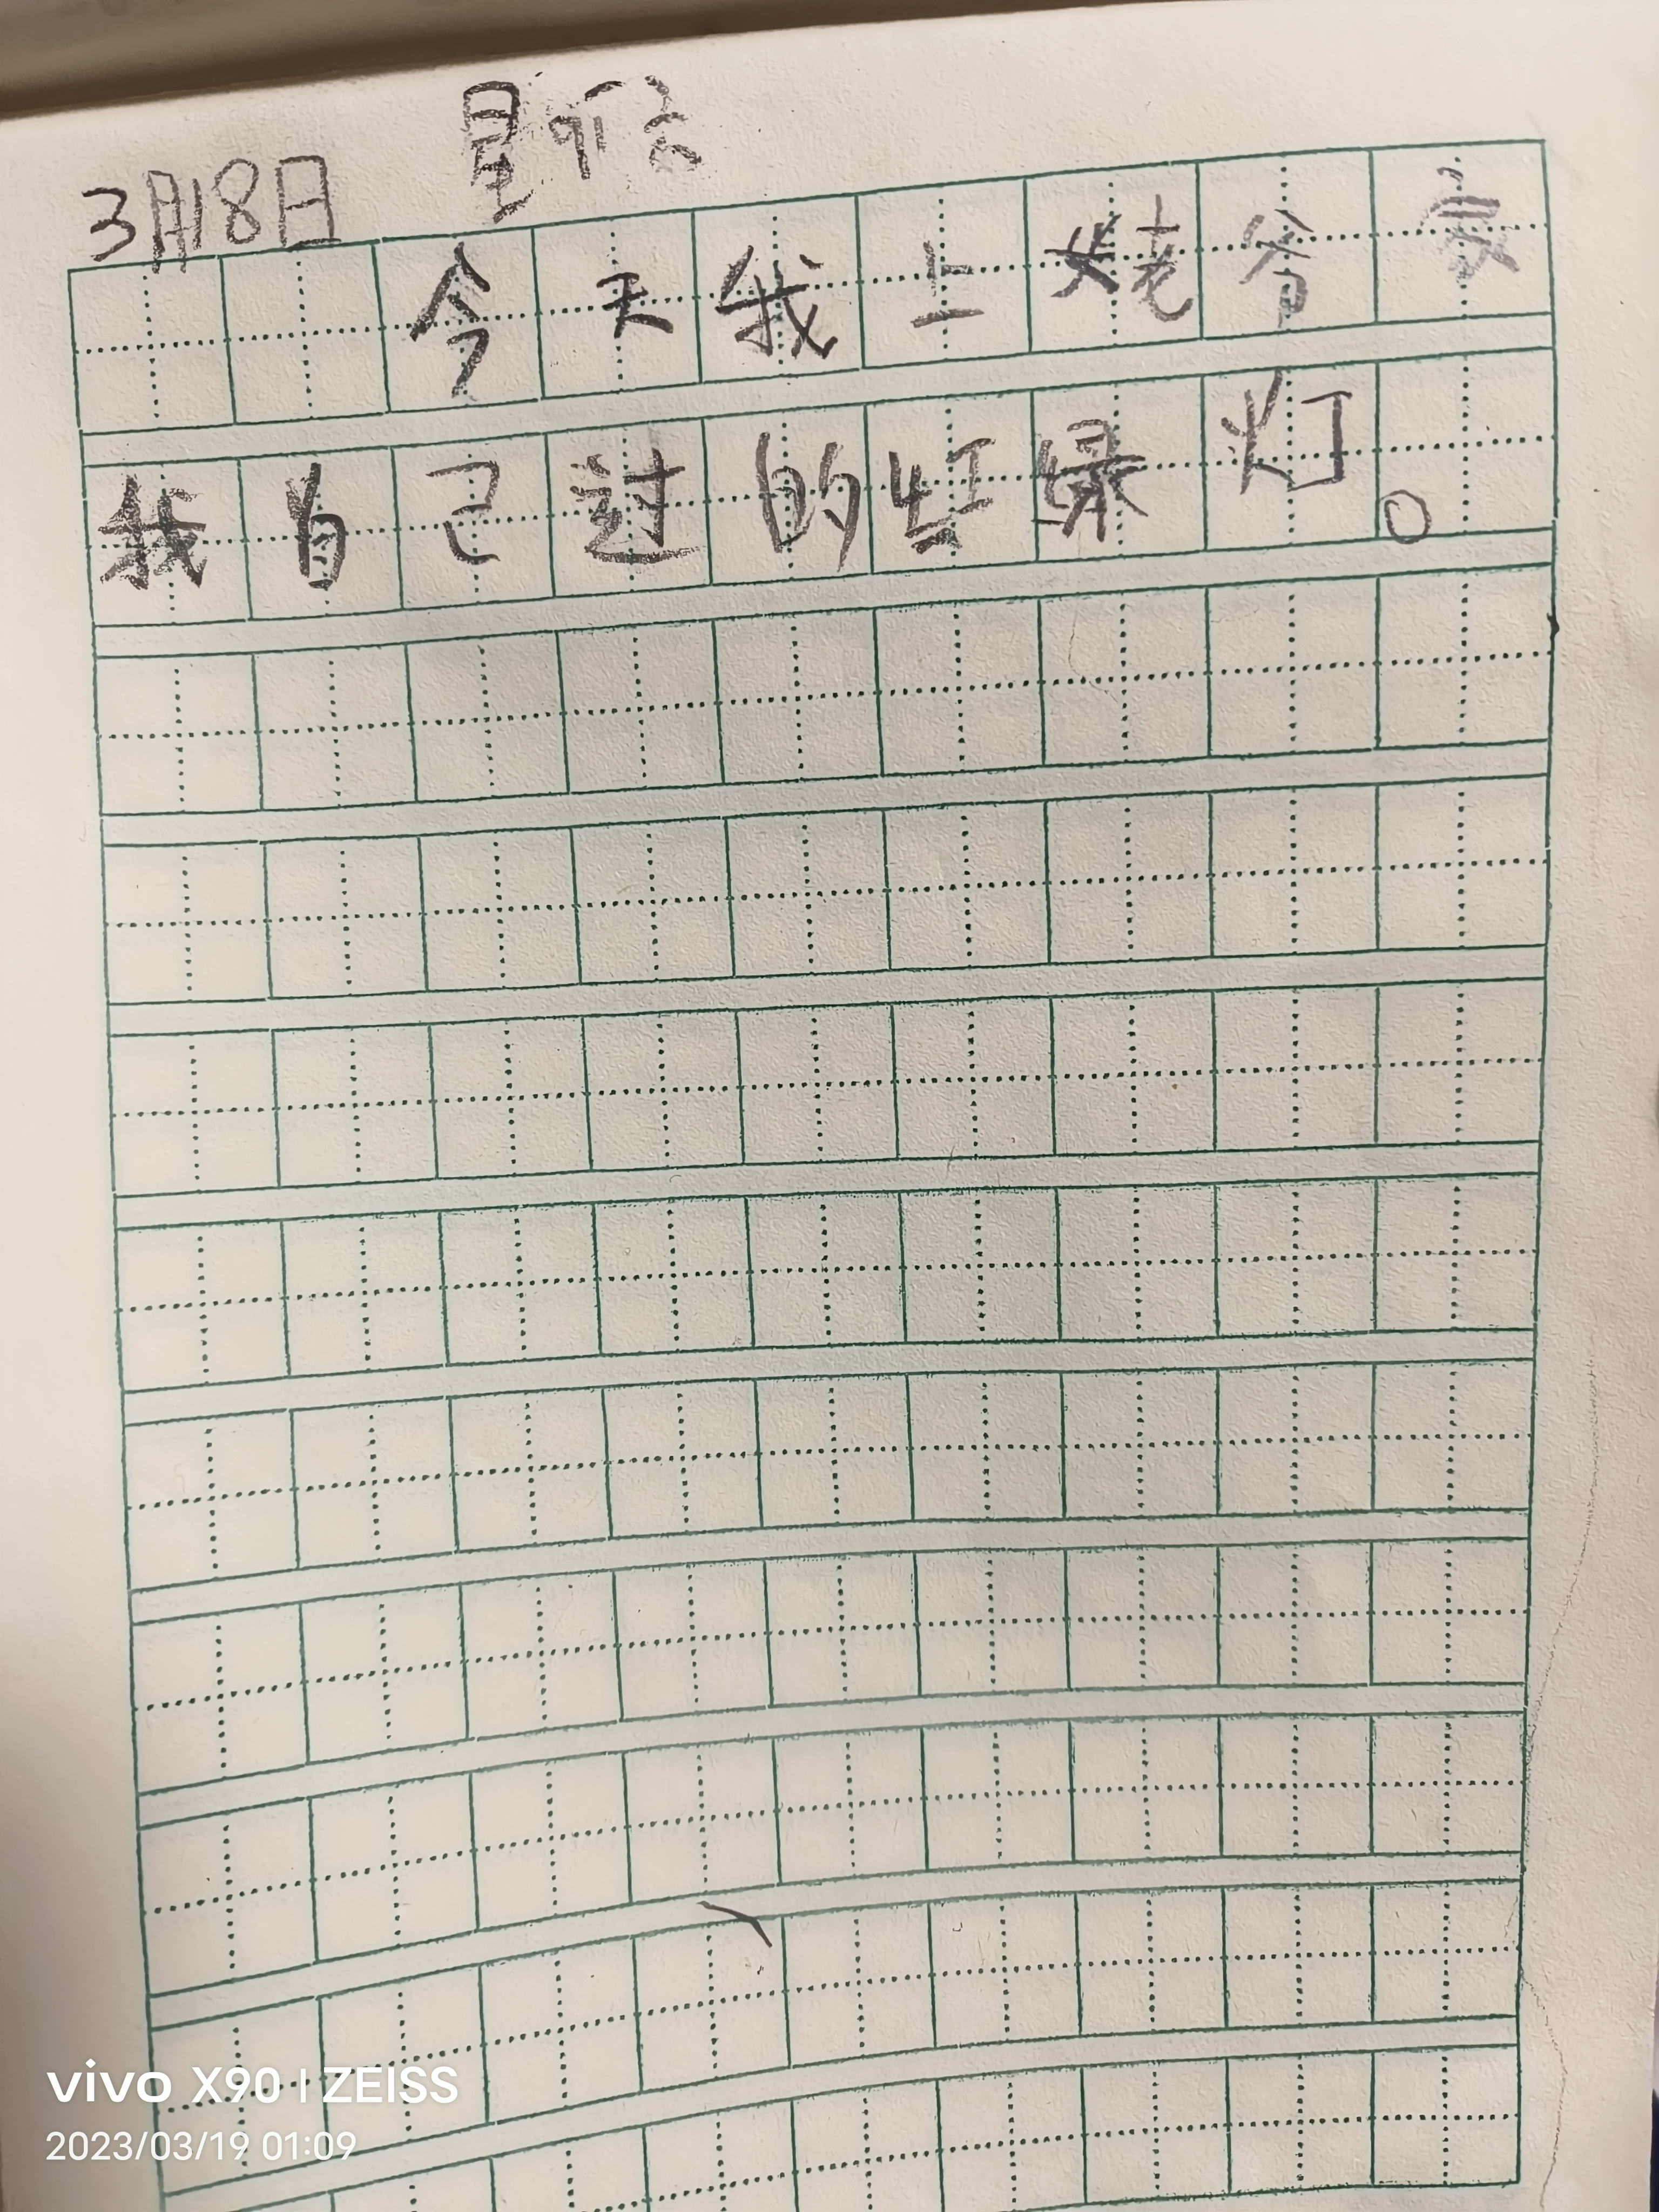 星
3月18日
今天我上姥爷家
我自己过的红绿灯。
vivo X90 | ZEISS
2023/03/19 01:09